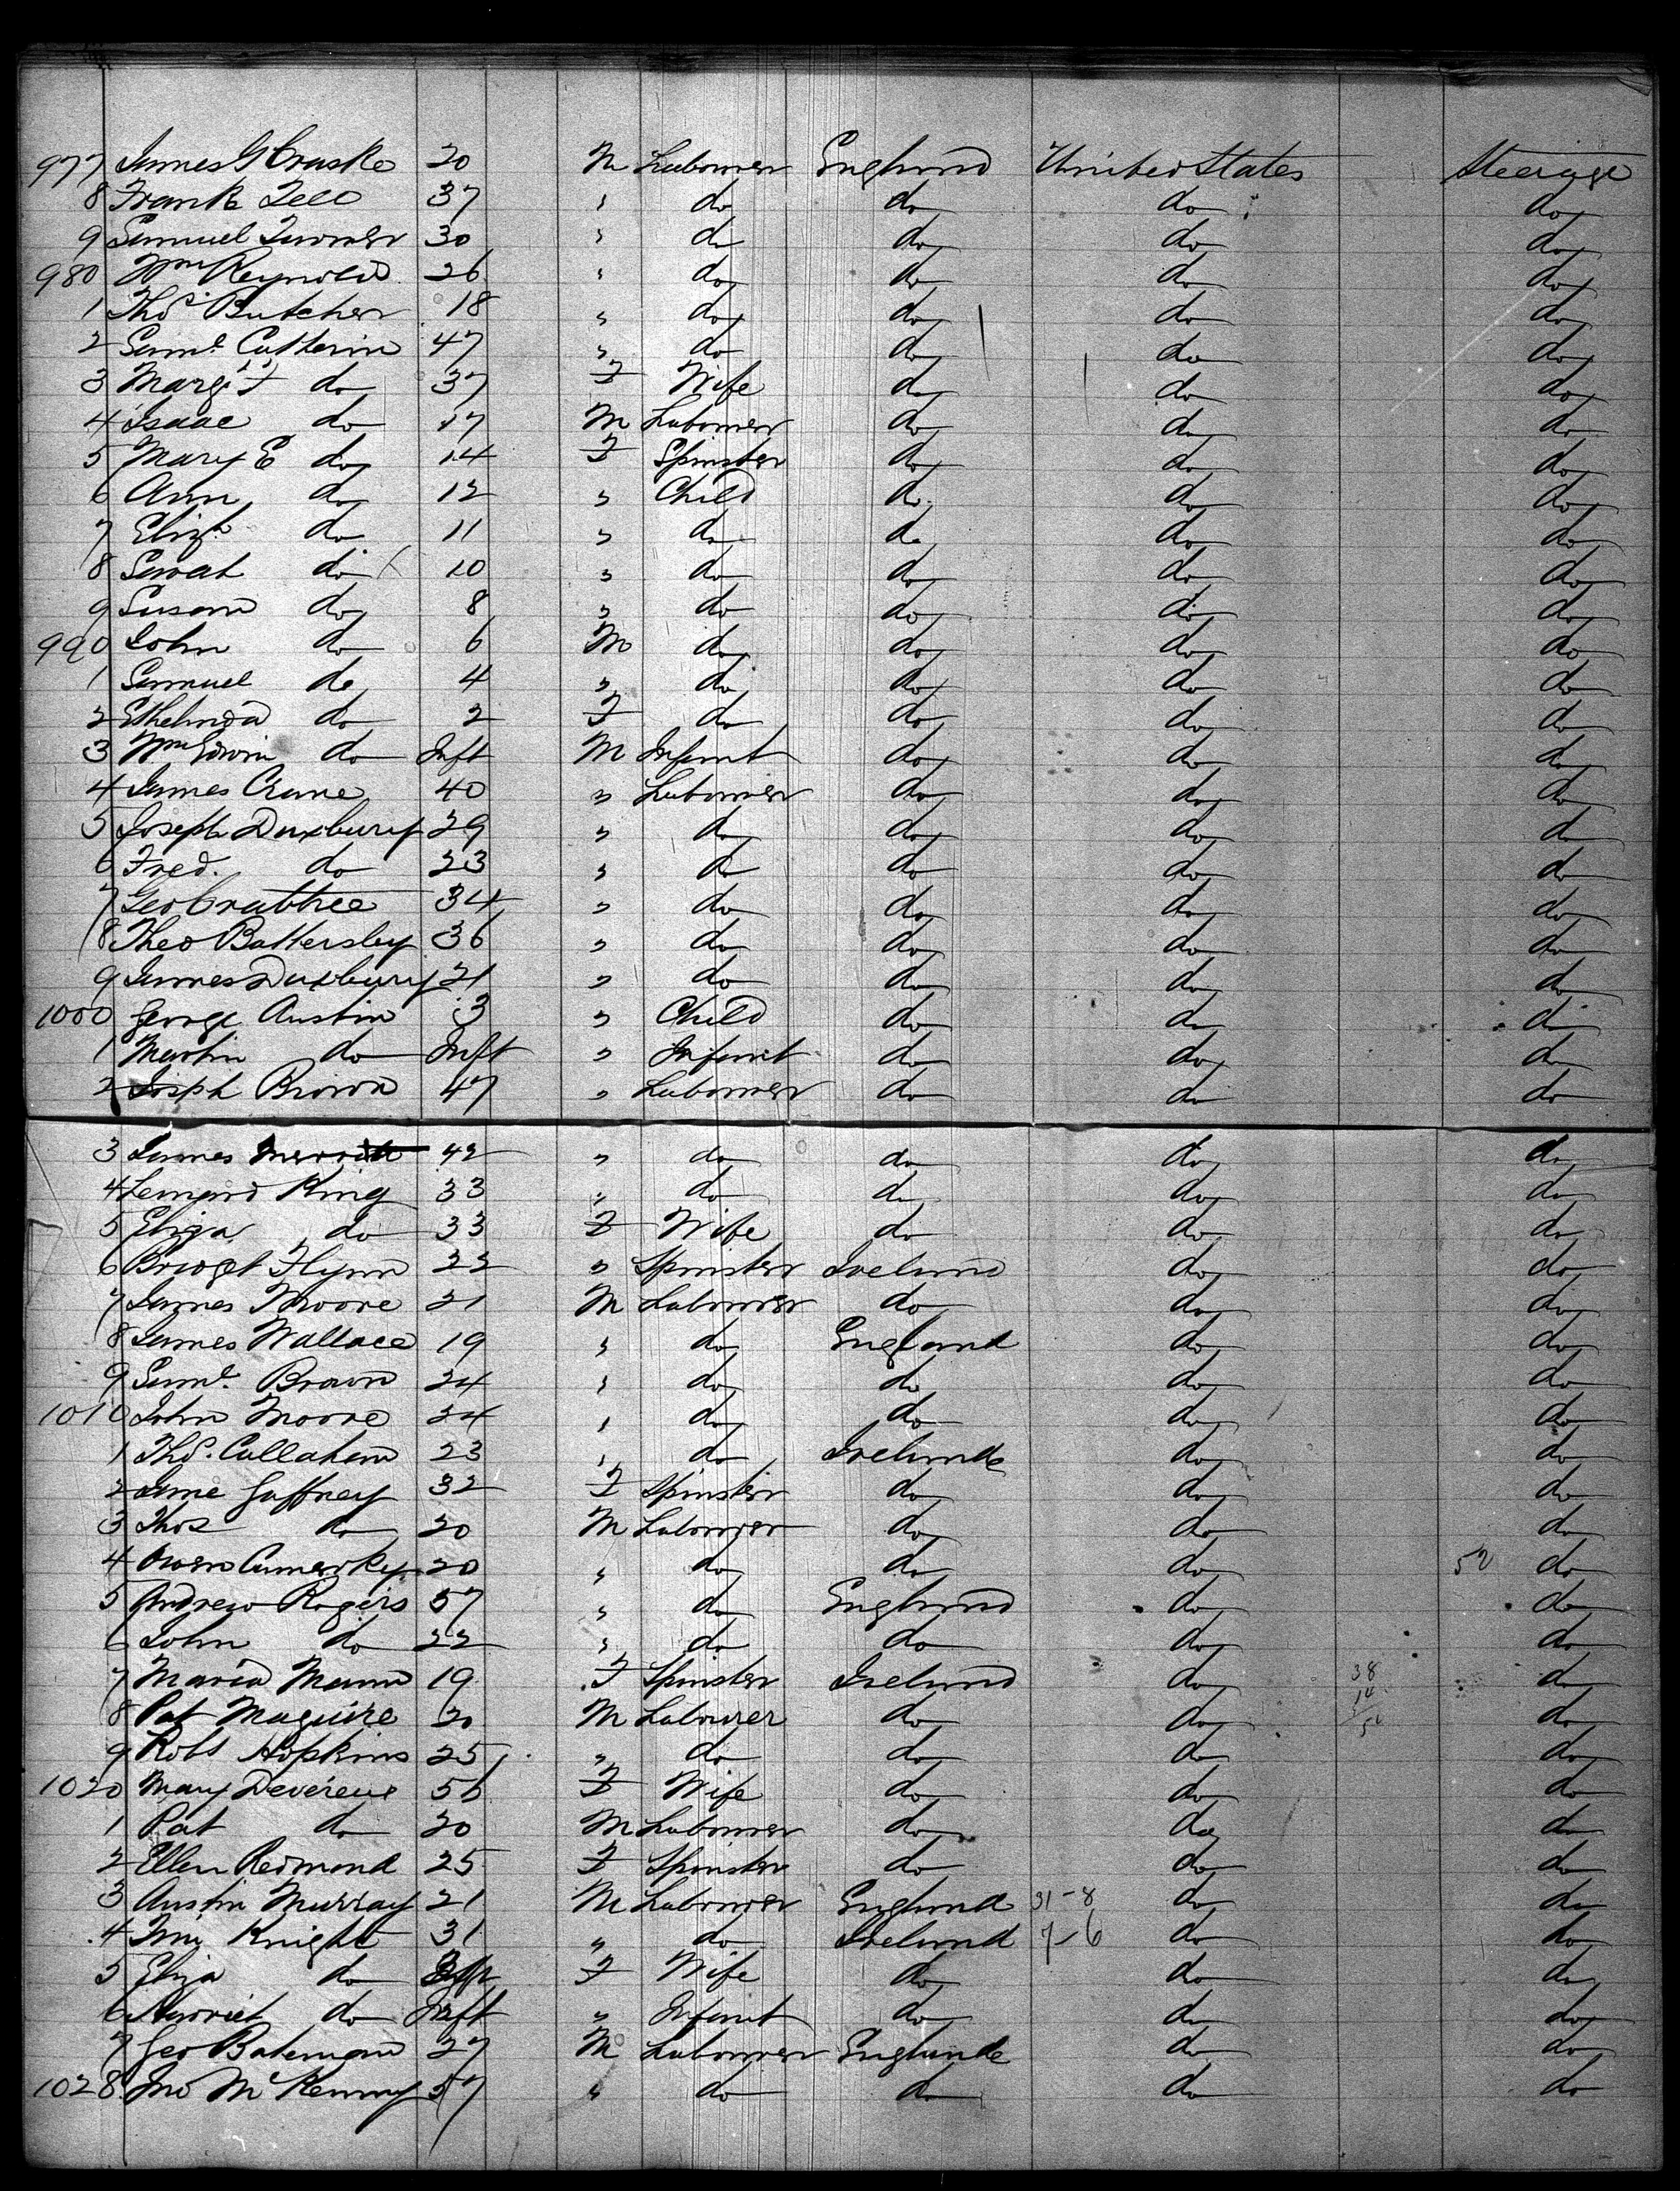 977 James G Craske 20 M Labourer England United States Steerage
8 Frank Tell 37 " do do do do
9 Samuel Turner 30 " do do do do
980 Wm Reynolds 26 " do do do do
1 Thos Butcher 18 " do do do do
2 Saml Catherin 47 " do do do do
3 Margt do 37 F Wife do do do
4 Isaac do 17 M Labourer do do do
5 Mary E do 14 F Spinster do do do
6 Ann do 12 " Child do do do
7 Elizh do 11 " do do do do
8 Sarah do 10 " do do do do
9 Susan do 8 " do do do do
990 John do 6 M do do do do
1 Samuel do 4 " do do do do
2 Ethelinda do 2 F do do do do
3 Wm Edwin do Inft M Infant do do do
4 James Crane 40 " Labourer do do do
5 Joseph Duxbury 29 " do do do do
6 Fred. do 23 " do do do do
7 Geo Crabtree 34 " do do do do
8 Theo Battersby 36 " do do do do
9 James Duxbury 21 " do do do do
1000 George Austin 3 " Child do do do
1 Martin do Inft " Infant do do do
2 Joseph Brown 47 " Labourer do do do
3 James Merritt 42 " do do do do
4 Lenard King 33 " do do do do
5 Eliza do 33 F Wife do do do
6 Bridget Flynn 22 " Spinster Ireland do do
7 James Moore 21 M Labourer do do do
8 James Wallace 19 " do England do do
9 Saml Brown 24 " do do do do
1010 John Moore 24 " do do do do
1 Thos. Callahan 23 " do Ireland do do
2 Jane Gaffney 32 F Spinster do do do
3 Thos do 20 M Labourer do do do
4 Owen 20 " do do do 52 do
5 Andrew Rogers 57 " do England do do
6 John do 22 " do do do do
7 Maria Mann 19 F Spinster Ireland do 38 do
8 Pat Maguire 20 M Labourer do do 14 do
9 Robt Hopkins 25 " do do do do
1020 Mary Devereux 56 F Wife do do do
1 Pat do 20 M Labourer do do do
2 Ellen Redmond 25 F Spinster do do do
3 Austin Murray 21 M Labourer England 31-8 do do
4 Knight 31 " do Ireland 7-6 do do
5 Eliza do F Wife do do do
6 Harriet do Inft " Infant do do do
7 Geo Bateman 27 M Labourer England do do
1028 Jno McKenny 57 " do do do do